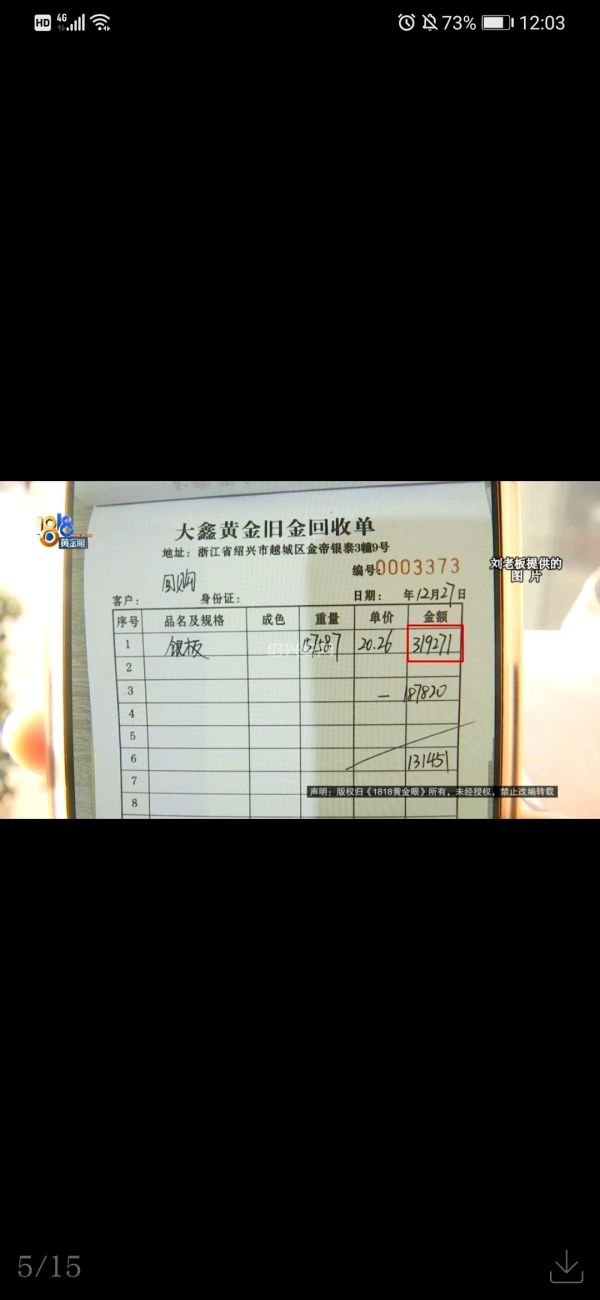 HD 4G 73% 12:03
1818
黄金眼
大鑫黄金旧金回收单
地址：浙江省绍兴市越城区金帝银泰3幢9号
编号0003373
刘老板提供的
图 片
回购
客户： 身份证： 日期： 年12月27日
序号 品名及规格 成色 重量 单价 金额
1 银板 15758.7 20.26 319271
2
3 — 187820
4
5
6 131451
7
声明：版权归《1818黄金眼》所有，未经授权，禁止改编转载
8
5/15